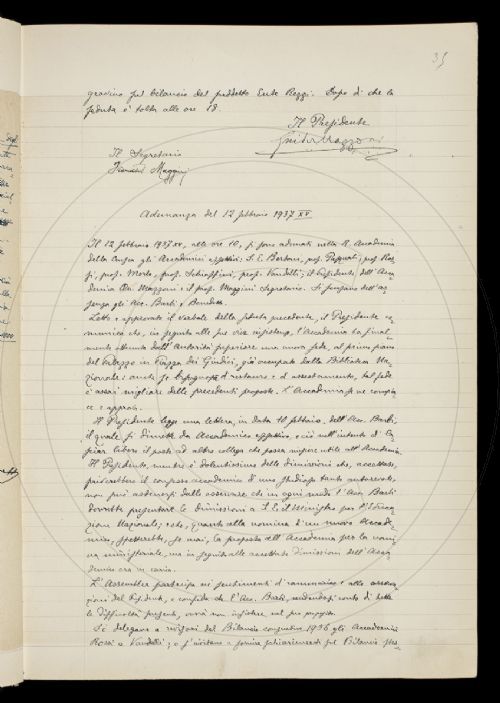 35
gravino sul bilancio del suddetto Ente Rezzi. Dopo di che la
seduta è tolta alle ore 18.
Il Presidente
Guido Mazzoni
Il Segretario
Francesco Maggini
Adunanza del 12 febbraio 1937 XV
Il 12 febbraio 1937 XV, alle ore 10, si sono adunati nella R. Accademia
della Crusca gli Accademici effettivi: S. E. Bertoni, prof. Pasquali, prof. Ros-
si, prof. Merlo, prof. Schiaffini, prof. Vandelli; il Presidente dell'Acca-
demia On. Mazzoni e il prof. Maggini Segretario. Si scusano dell'as-
senza gli Acc. Barbi e Benedetti.
Letto e approvato il verbale della seduta precedente, il Presidente co-
munica che, in seguito alle sue vive insistenze, l'Accademia ha final-
mente ottenuto dall'Autorità superiore una nuova sede, al primo piano
del Palazzo in Piazza dei Giudici, già occupato dalla Biblioteca Na-
zionale: anche se bisognosa d'restauro e d'assestamento, tal sede
è assai migliore delle precedenti proposte. L'Accademia se ne compia-
ce e approva.
Il Presidente legge una lettera, in data 10 febbraio, dell'Acc. Barbi,
il quale si dimette da Accademico effettivo, e ciò nell'intento di la-
sciar libero il posto ad altro collega che possa esser utile all'Accademia.
Il Presidente, mentre è dolentissimo delle dimissioni che, accettate,
priverebbero il consesso accademico d'uno studioso tanto autorevole,
non può astenersi dall'osservare che in ogni modo l'Acc. Barbi
dovrebbe presentare le dimissioni a S. E. il Ministro per l'Educa-
zione Nazionale; e che, quanto alla nomina d'un nuovo Accade-
mico, spetterebbe, se mai, la proposta all'Accademia per la nomi-
na ministeriale, ma in seguito alle accettate dimissioni dell'Acca-
demico ora in carica.
L'Assemblea partecipa ai sentimenti di rammarico e alle osserva-
zioni del Presidente, e confida che l'Acc. Barbi, rendendosi conto di tutte
le difficoltà presenti, vorrà non insistere nel suo proposito.
Si delegano a revisori del Bilancio consuntivo 1936 gli Accademici
Rossi e Vandelli; e s'invitano a fornire schiarimenti sul Bilancio stes-